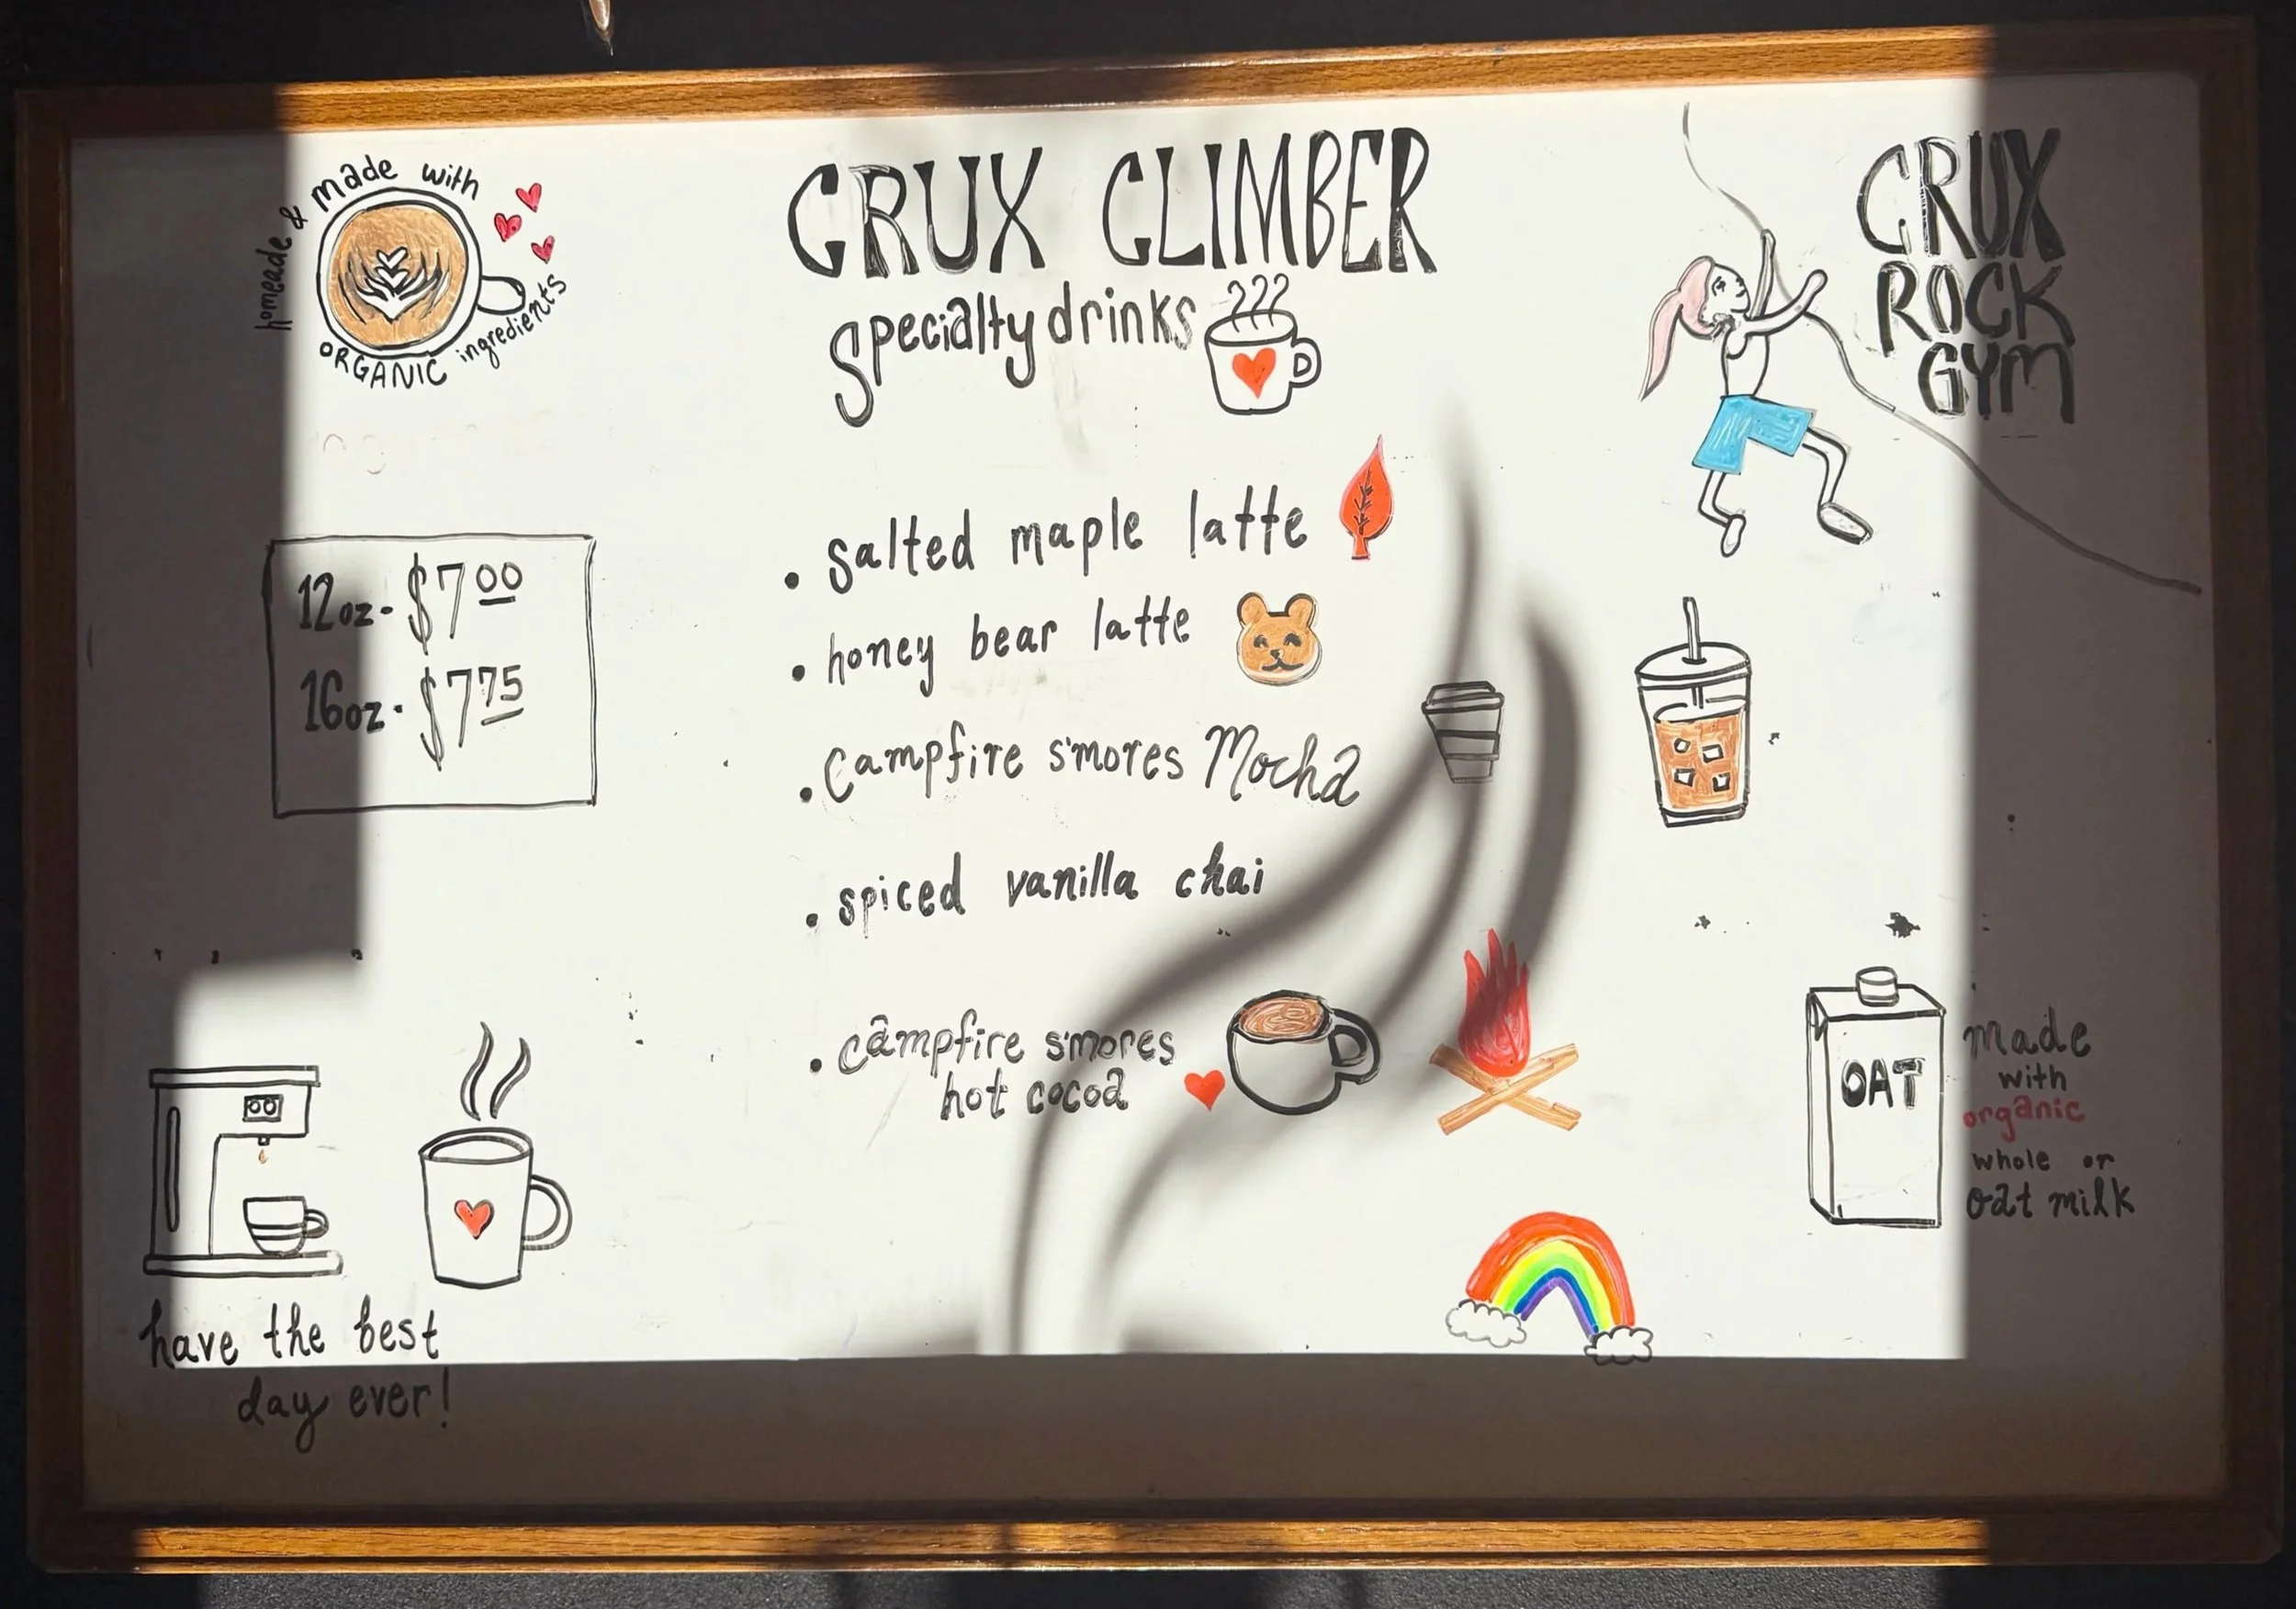 homeade & made with
ORGANIC ingredients
CRUX CLIMBER
specialty drinks
CRUX
ROCK
GYM
12oz - $7.00
16oz - $7.75
• salted maple latte
• honey bear latte
• campfire s'mores Mocha
• spiced vanilla chai
• campfire s'mores
hot cocoa
OAT
made
with
organic
whole or
oat milk
have the best
day ever!